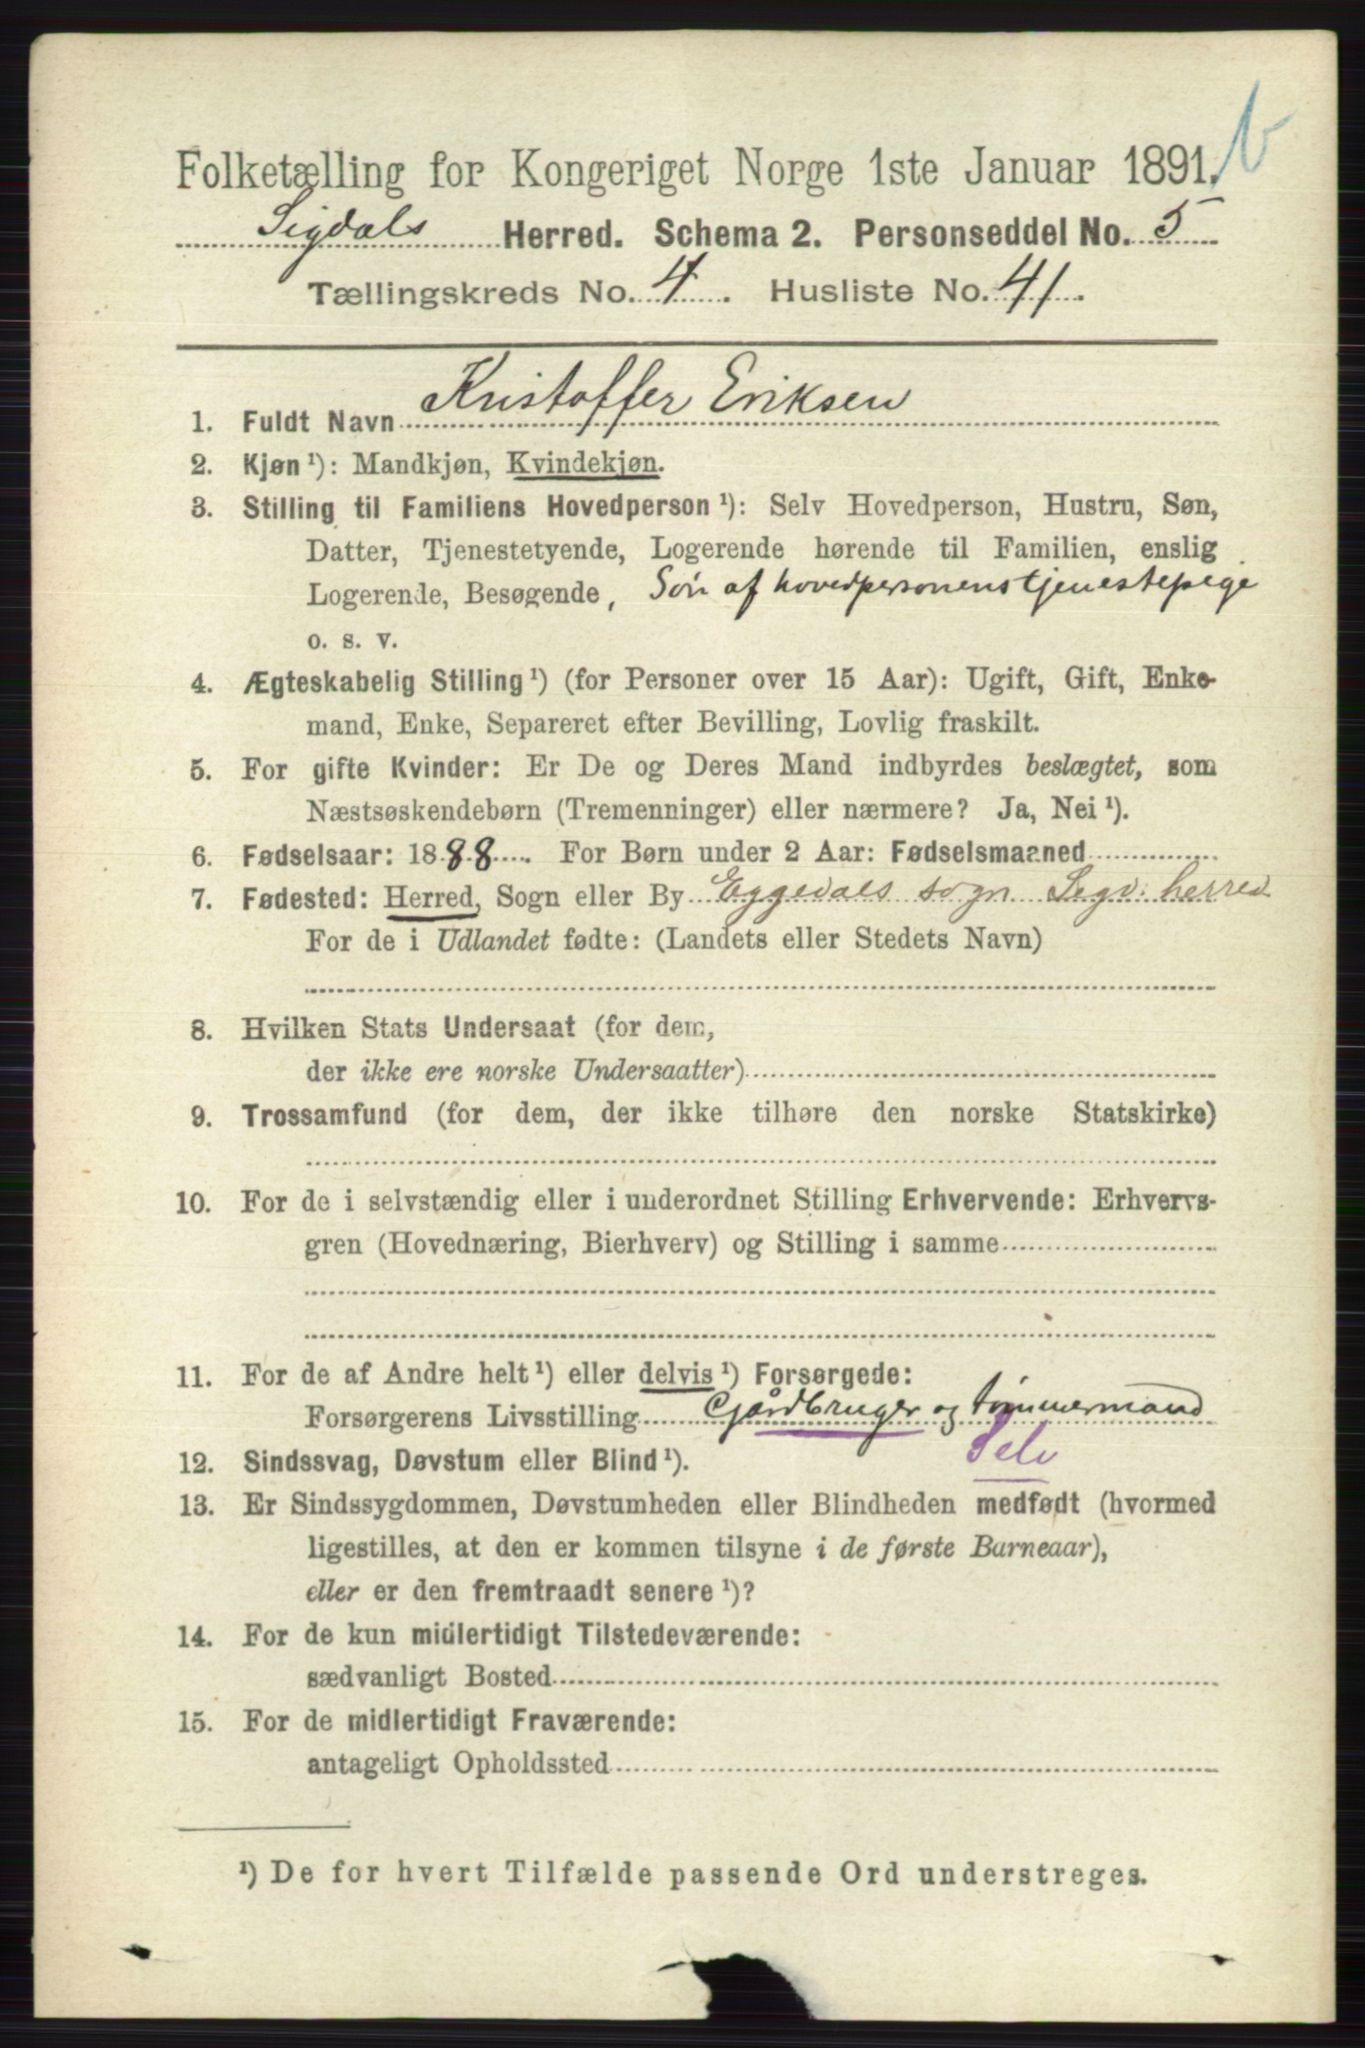 b
Folketælling for Kongeriget Norge 1ste Januar 1891.
Sigdals Herred. Schema 2. Personseddel No. 5
Tællingskreds No. 4. Husliste No. 41.
1. Fuldt Navn Kristoffer Eriksen
2. Kjøn ¹): Mandkjøn, Kvindekjøn.
3. Stilling til Familiens Hovedperson ¹): Selv Hovedperson, Hustru, Søn,
Datter, Tjenestetyende, Logerende hørende til Familien, enslig
Logerende, Besøgende, Søn af hovedpersonens tjenestepige
o. s. v.
4. Ægteskabelig Stilling ¹) (for Personer over 15 Aar): Ugift, Gift, Enke-
mand, Enke, Separeret efter Bevilling, Lovlig fraskilt.
5. For gifte Kvinder: Er De og Deres Mand indbyrdes beslægtet, som
Næstsøskendebørn (Tremenninger) eller nærmere? Ja, Nei ¹).
6. Fødselsaar: 1888. For Børn under 2 Aar: Fødselsmaaned
7. Fødested: Herred, Sogn eller By Eggedals sogn Sigd. herred
For de i Udlandet fødte: (Landets eller Stedets Navn)
8. Hvilken Stats Undersaat (for dem,
der ikke ere norske Undersaatter)
9. Trossamfund (for dem, der ikke tilhøre den norske Statskirke)
10. For de i selvstændig eller i underordnet Stilling Erhvervende: Erhvervs-
gren (Hovednæring, Bierhverv) og Stilling i samme
11. For de af Andre helt ¹) eller delvis ¹) Forsørgede:
Forsørgerens Livsstilling Gjårdbruger og tømmermand
Selv
12. Sindssvag, Døvstum eller Blind ¹).
13. Er Sindssygdommen, Døvstumheden eller Blindheden medfødt (hvormed
ligestilles, at den er kommen tilsyne i de første Barneaar),
eller er den fremtraadt senere ¹)?
14. For de kun midlertidigt Tilstedeværende:
sædvanligt Bosted
15. For de midlertidigt Fraværende:
antageligt Opholdssted
¹) De for hvert Tilfælde passende Ord understreges.